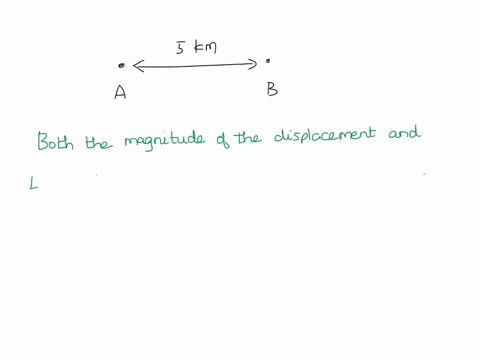 5 km
A
B
Both the magnitude of the displacement and